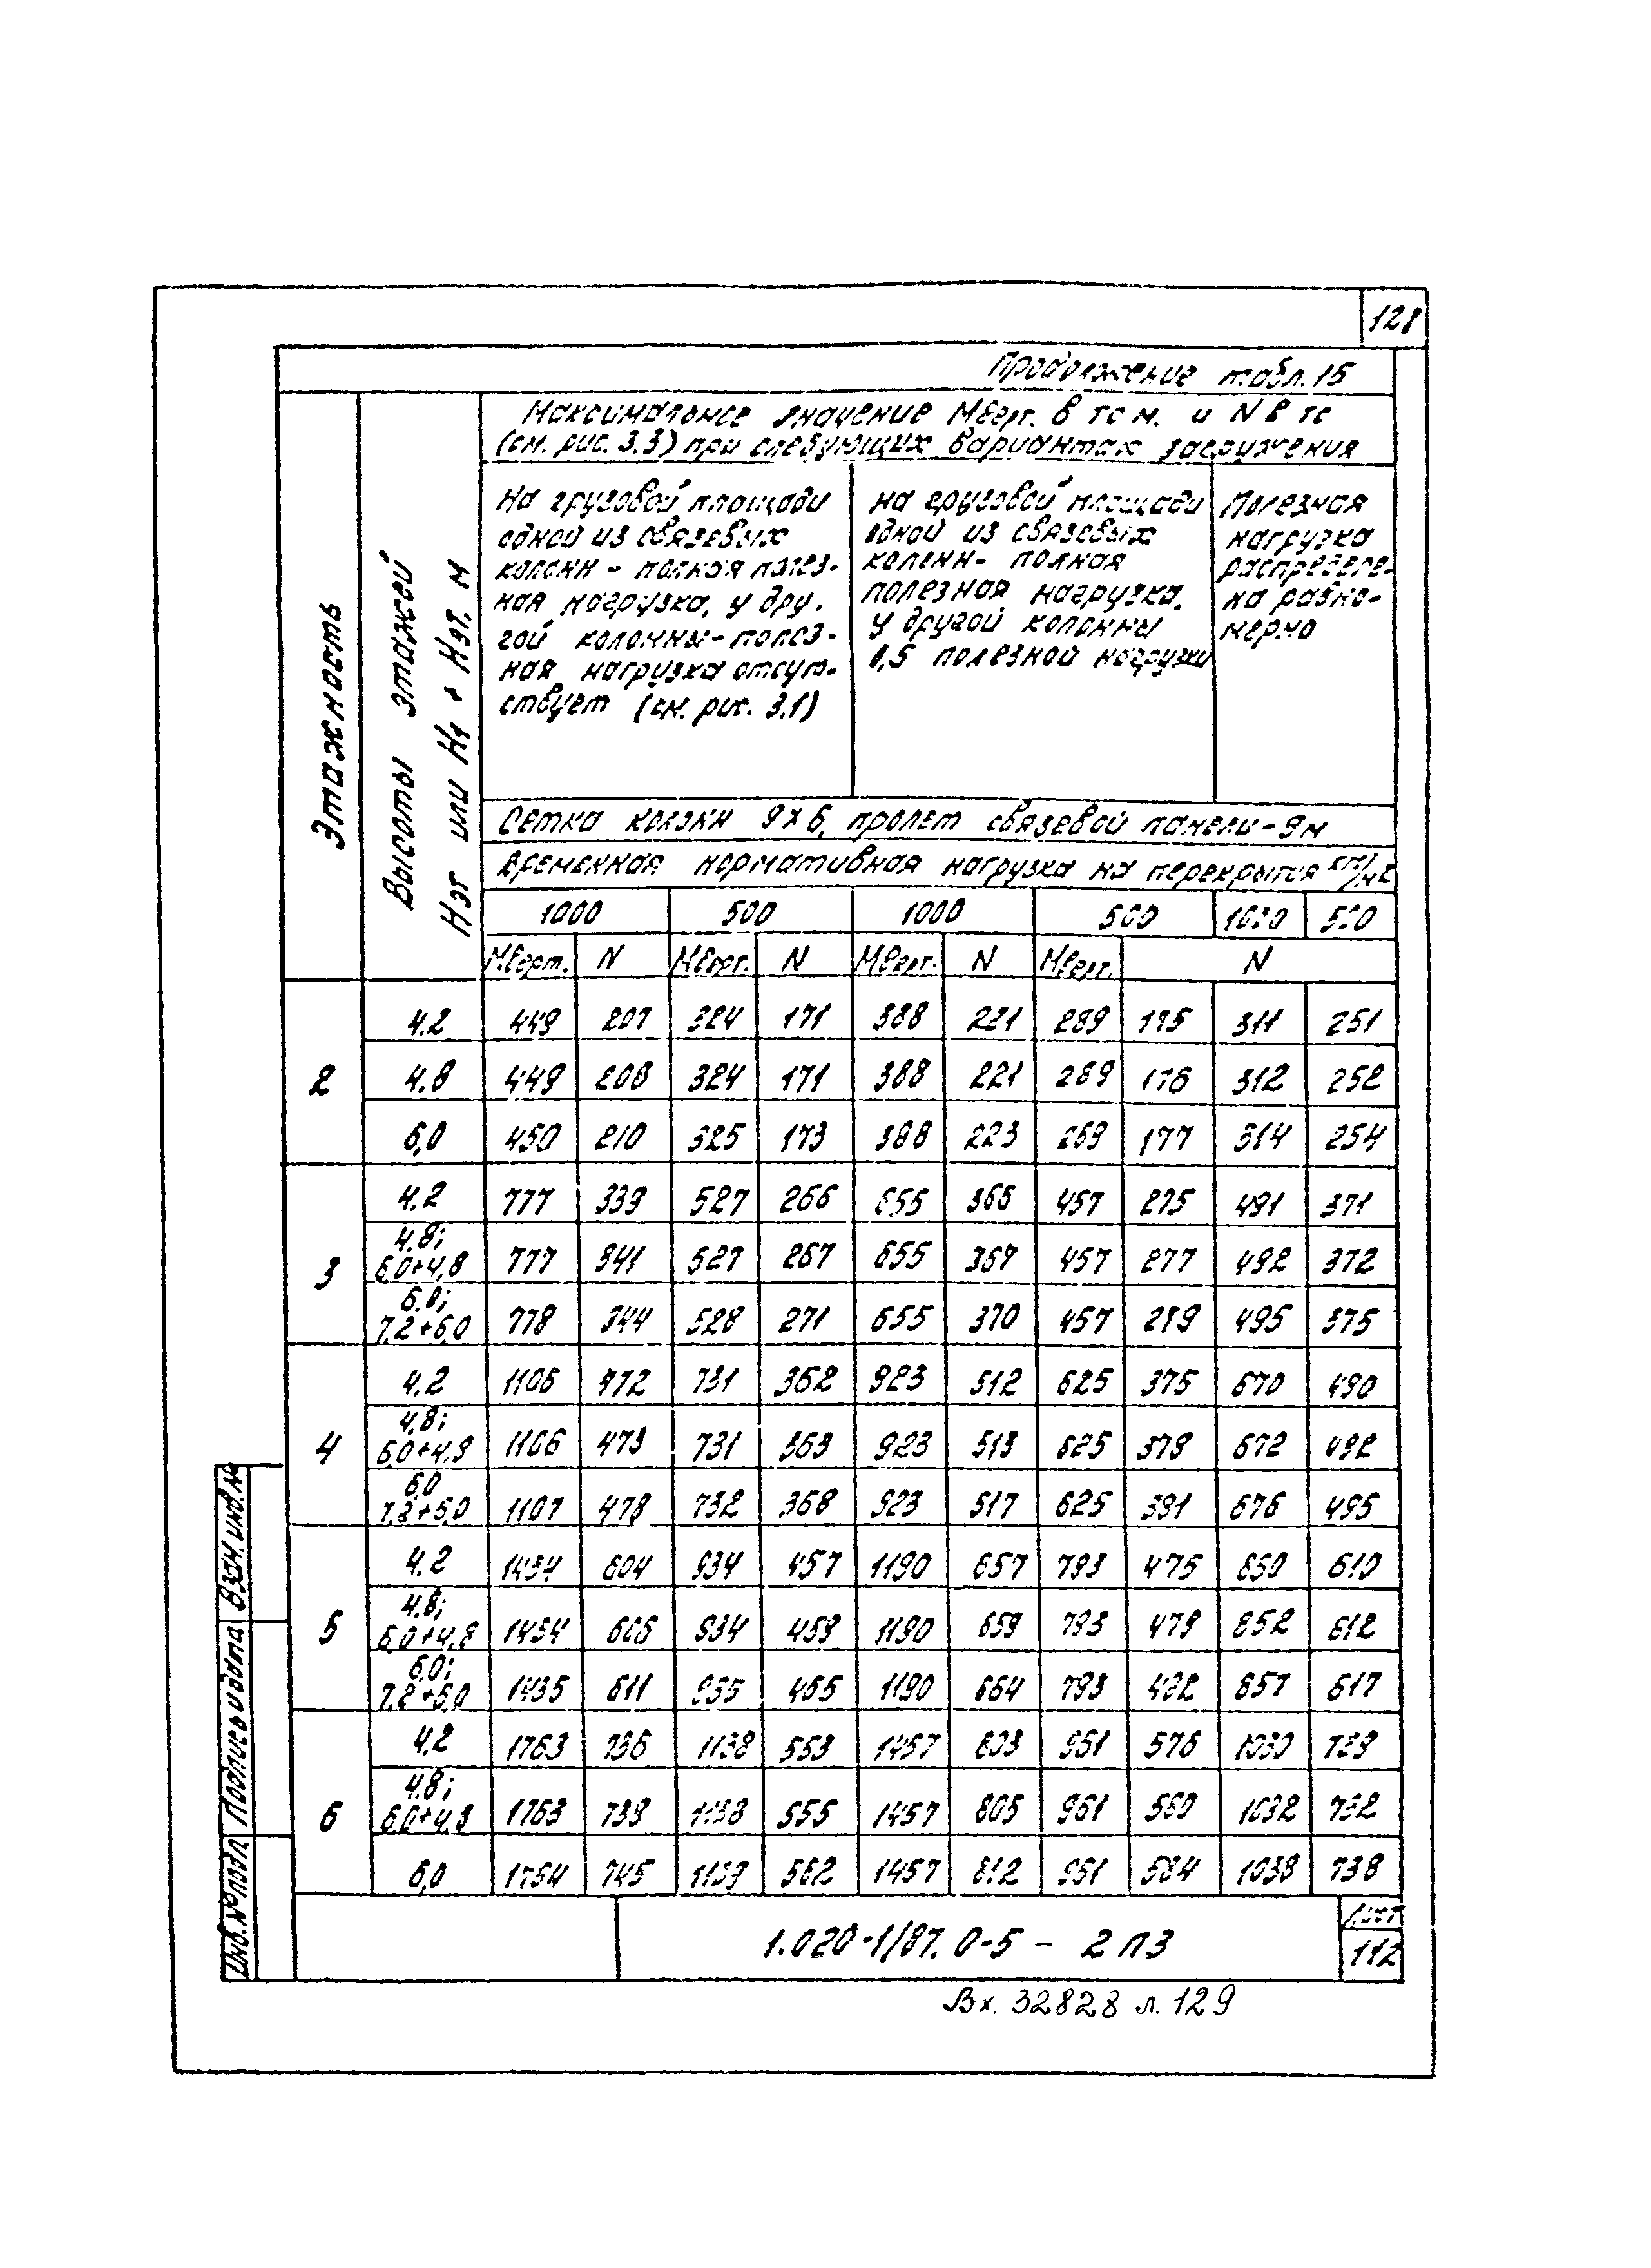 128
Продолжение табл. 15
Этажность
Высоты этажей
Нэт или Н1 + Нэт. м
Максимальное значение Мверт. в тс м. и N в тс
(см. рис. 3.3) при следующих вариантах загружения
На грузовой площади
одной из связевых
колонн - полная полез-
ная нагрузка, у дру-
гой колонны - полез-
ная нагрузка отсут-
ствует (см. рис. 3.1)
на грузовой площади
одной из связевых
колонн - полная
полезная нагрузка,
у другой колонны
0,5 полезной нагрузки
Полезная
нагрузка
распределе-
на равно-
мерно
Сетка колонн 9х6, пролет связевой панели - 9м
Временная нормативная нагрузка на перекрытия кгс/м2
1000 500 1000 500 1000 500
Мверт. N Мверт. N Мверт. N Мверт. N
2
4.2 449 207 324 171 388 221 289 175 311 251
4.8 449 208 324 171 388 221 289 176 312 252
6,0 450 210 325 173 388 223 289 177 314 254
3
4.2 777 339 527 266 655 366 457 275 491 371
4.8;
6,0+4,8 777 341 527 267 655 367 457 277 492 372
6.0;
7.2+6,0 778 344 528 271 655 370 457 279 495 375
4
4,2 1106 472 731 362 923 512 625 375 670 490
4,8;
6,0+4,8 1106 473 731 363 923 513 625 378 672 492
6,0
7,2+6,0 1107 478 732 368 923 517 625 381 676 495
5
4.2 1434 604 934 457 1190 657 793 475 850 610
4.8;
6,0+4,8 1434 606 934 459 1190 659 793 479 852 612
6,0;
7,2+6,0 1435 611 935 465 1190 664 793 482 857 617
6
4,2 1763 736 1138 553 1457 803 961 576 1030 729
4.8;
6,0+4,8 1763 739 1138 555 1457 805 961 580 1032 732
6,0 1764 745 1139 562 1457 812 961 584 1038 738
Инв. № подл. Подпись и дата Взам. инв. №
1.020-1/87. 0-5 - 2 ПЗ
Лист
112
Вх. 32828 л. 129